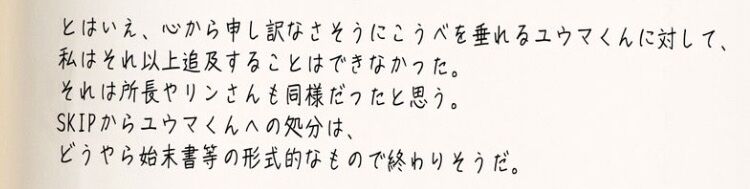 とはいえ、心から申し訳なさそうにこうべを垂れるユウマくんに対して、
私はそれ以上追及することはできなかった。
それは所長やリンさんも同様だったと思う。
SKIPからユウマくんへの処分は、
どうやら始末書等の形式的なもので終わりそうだ。